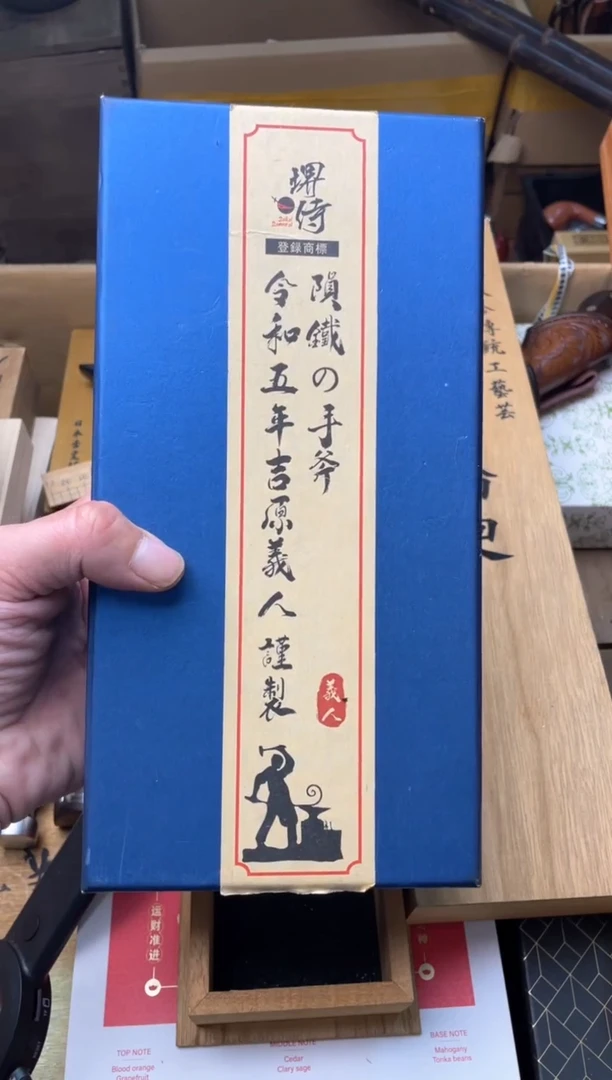 堺侍
登録商標
隕鐵の手斧
令和五年吉原義人謹製
義人
傳統工藝芸
运财准进
TOP NOTE
Blood orange
Grapefruit
MIDDLE NOTE
Cedar
Clary sage
BASE NOTE
Mahogany
Tonka beans